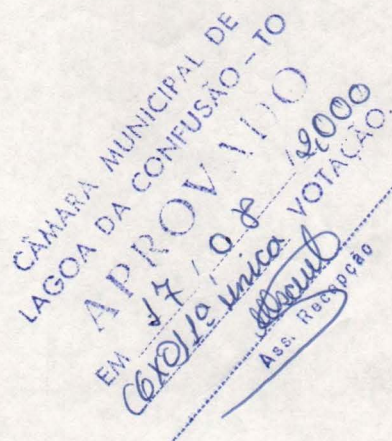 CÂMARA MUNICIPAL DE
LAGOA DA CONFUSÃO - TO
APROVADO
EM 17 / 08 / 2000
(6X0) 1ª única VOTAÇÃO.
Ass. Recepção